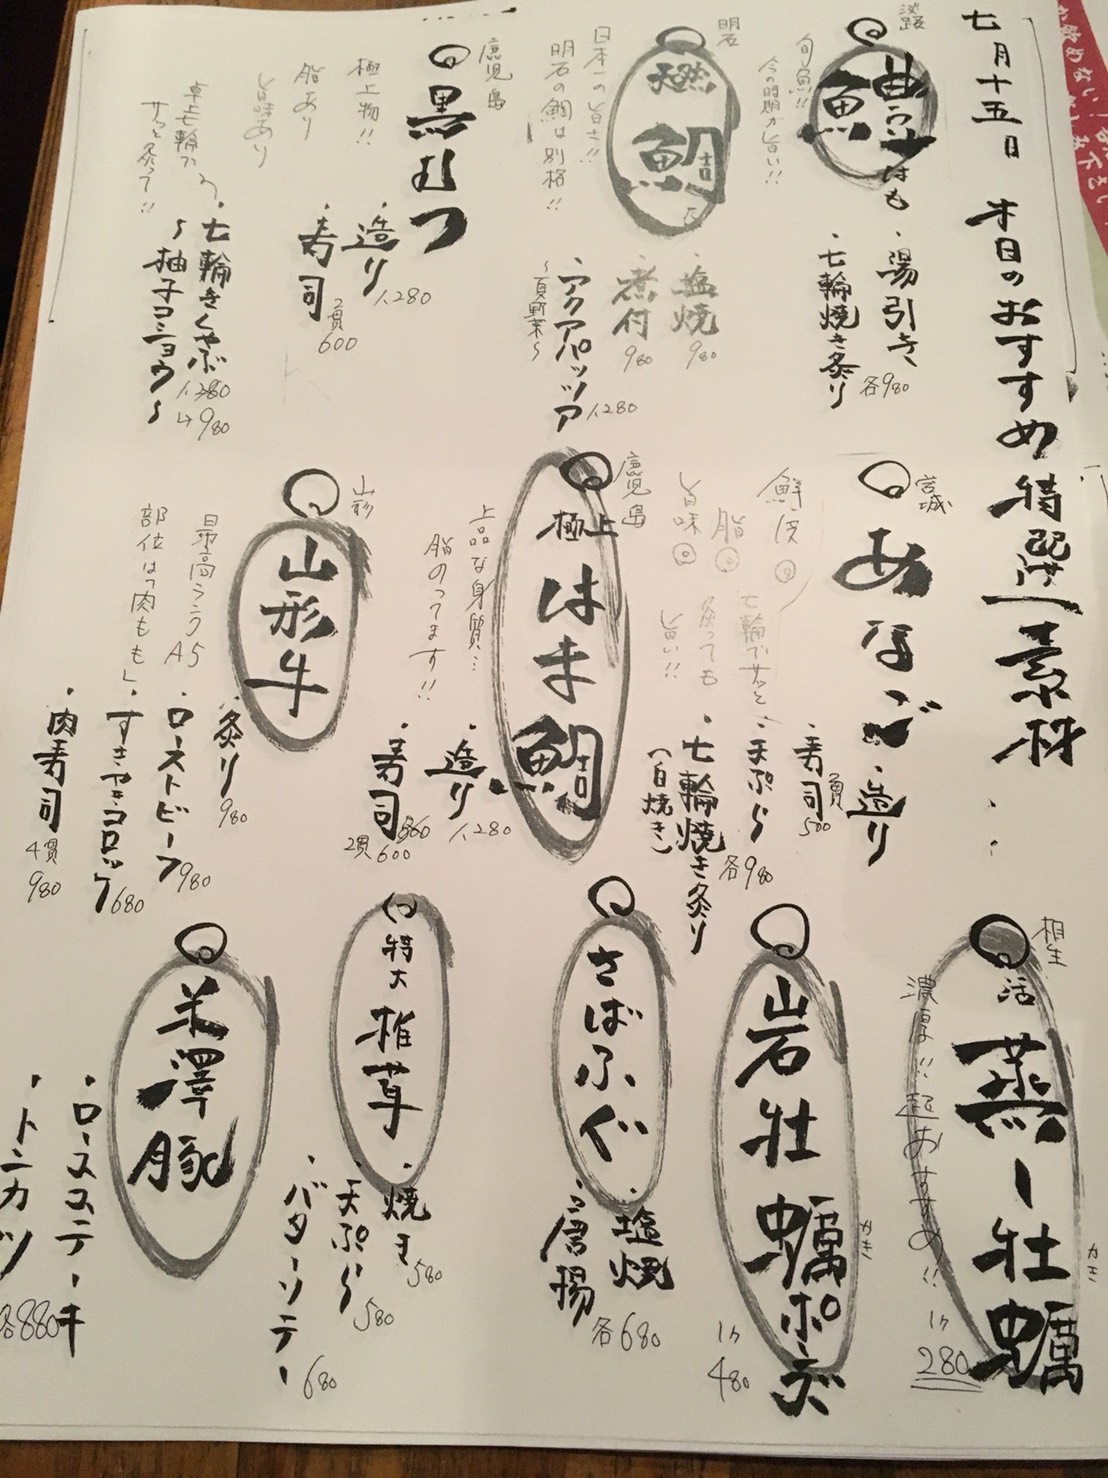 七月十五日 本日のおすすめ特選素材
淡路
鱧 はも
旬魚!!
今の時期が旨い!!
・湯引き
・七輪焼き炙り
各980
明石
天然
鯛
日本一の旨さ!!
明石の鯛は別格!!
・塩焼
980
・煮付
980
・アクアパッツァ
1,280
〜夏野菜〜
鹿児島
黒むつ
極上物!!
脂あり
旨味あり
・造り
1,280
・寿司
2貫
600
卓上七輪で
サッと炙って!!
・七輪きしゃぶ
〜柚子コショウ〜
1,380
↳980
宮城
あなご
鮮度◎
脂◎
旨味◎
七輪でサッと
炙っても
旨い!!
・造り
・寿司
2貫
500
・天ぷら
・七輪焼き炙り
(白焼き)
各980
鹿児島
極上
はま鯛
上品な身質…
脂のってます!!
・造り
1,280
・寿司
2貫600
山形
山形牛
最高ランクA5
部位は「肉もも」
・炙り
980
・ローストビーフ
980
・すきやきコロッケ
680
・肉寿司
4貫
980
相生
活
蒸し牡蠣
カキ
濃厚!! 超おすすめ!!
1ケ
280
岩牡蠣ポン酢
カキ
1ケ
480
さばふぐ
・塩焼
・唐揚
各680
特大
椎茸
・焼き
580
・天ぷら
580
・バターソテー
680
米澤豚
・ロースステーキ
・トンカツ
各880